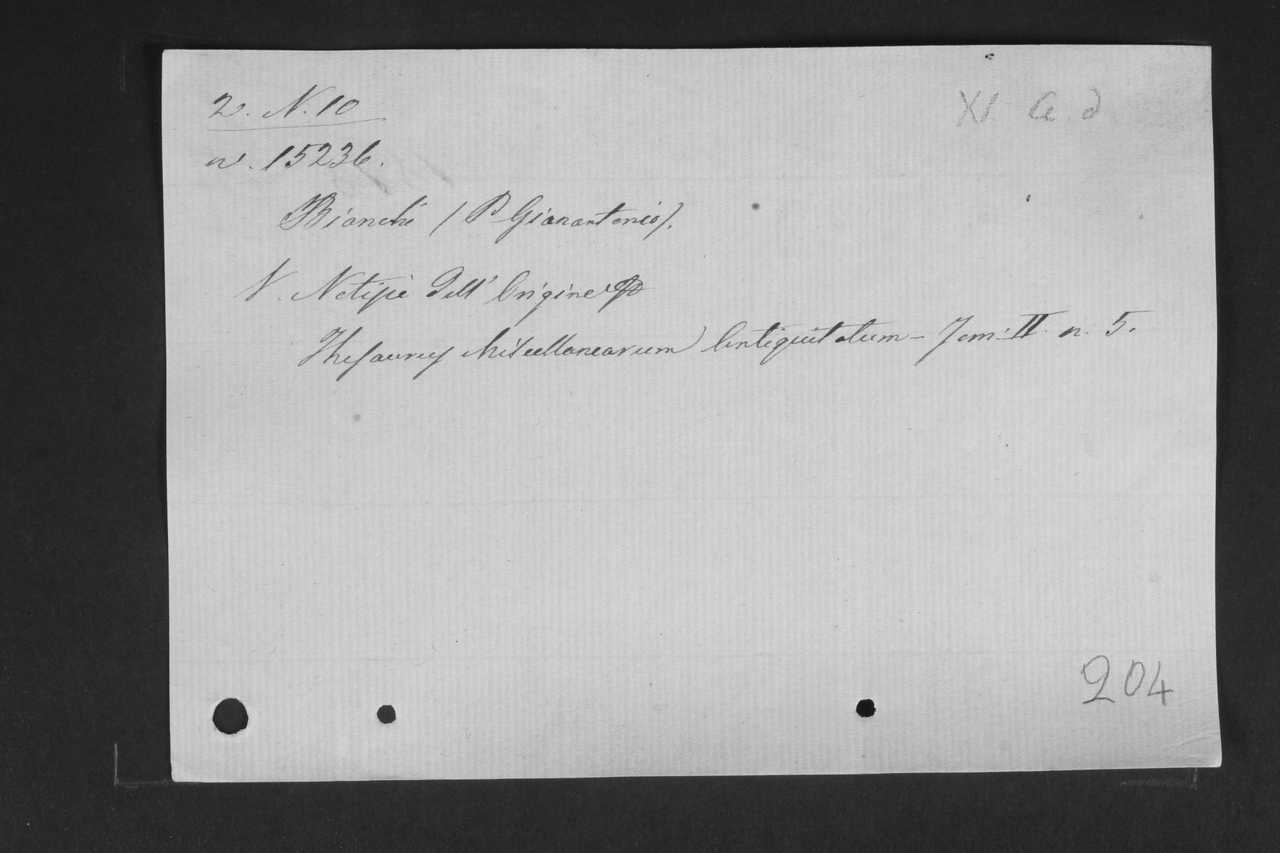 2. N. 10
XI. a. d
n. 15236.
Bianchi (P. Gianantonio).
V. Notizie dell' Origine
Thesaurus Miscellanearum Antiquitatum – Tom. II. n. 5.
204